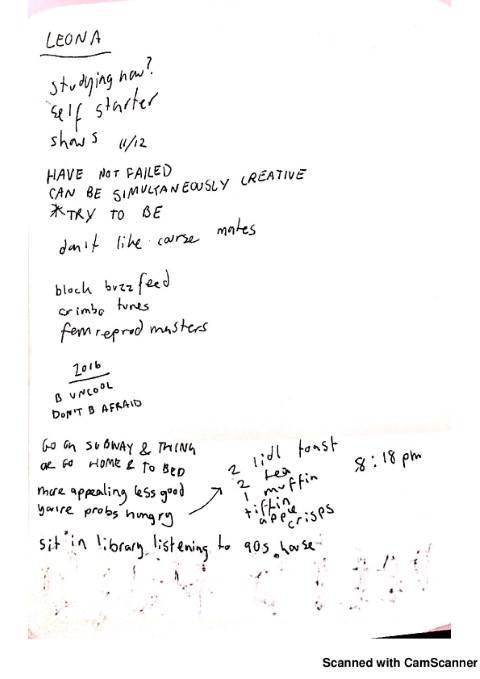 LEONA
studying now?
self starter
shows 11/12
HAVE NOT FAILED
CAN BE SIMULTANEOUSLY CREATIVE
*TRY TO BE
don't like course mates
block buzzfeed
crimbo tunes
fem reprod masters
2016
B UNCOOL
DON'T B AFRAID
GO ON SUBWAY & THING
OR GO HOME & TO BED
more appealing less good
you're probs hungry
2 lidl toast
2 tea
1 muffin
tiffin
apple
crisps
8:18 pm
sit in library listening to 90s house
Scanned with CamScanner